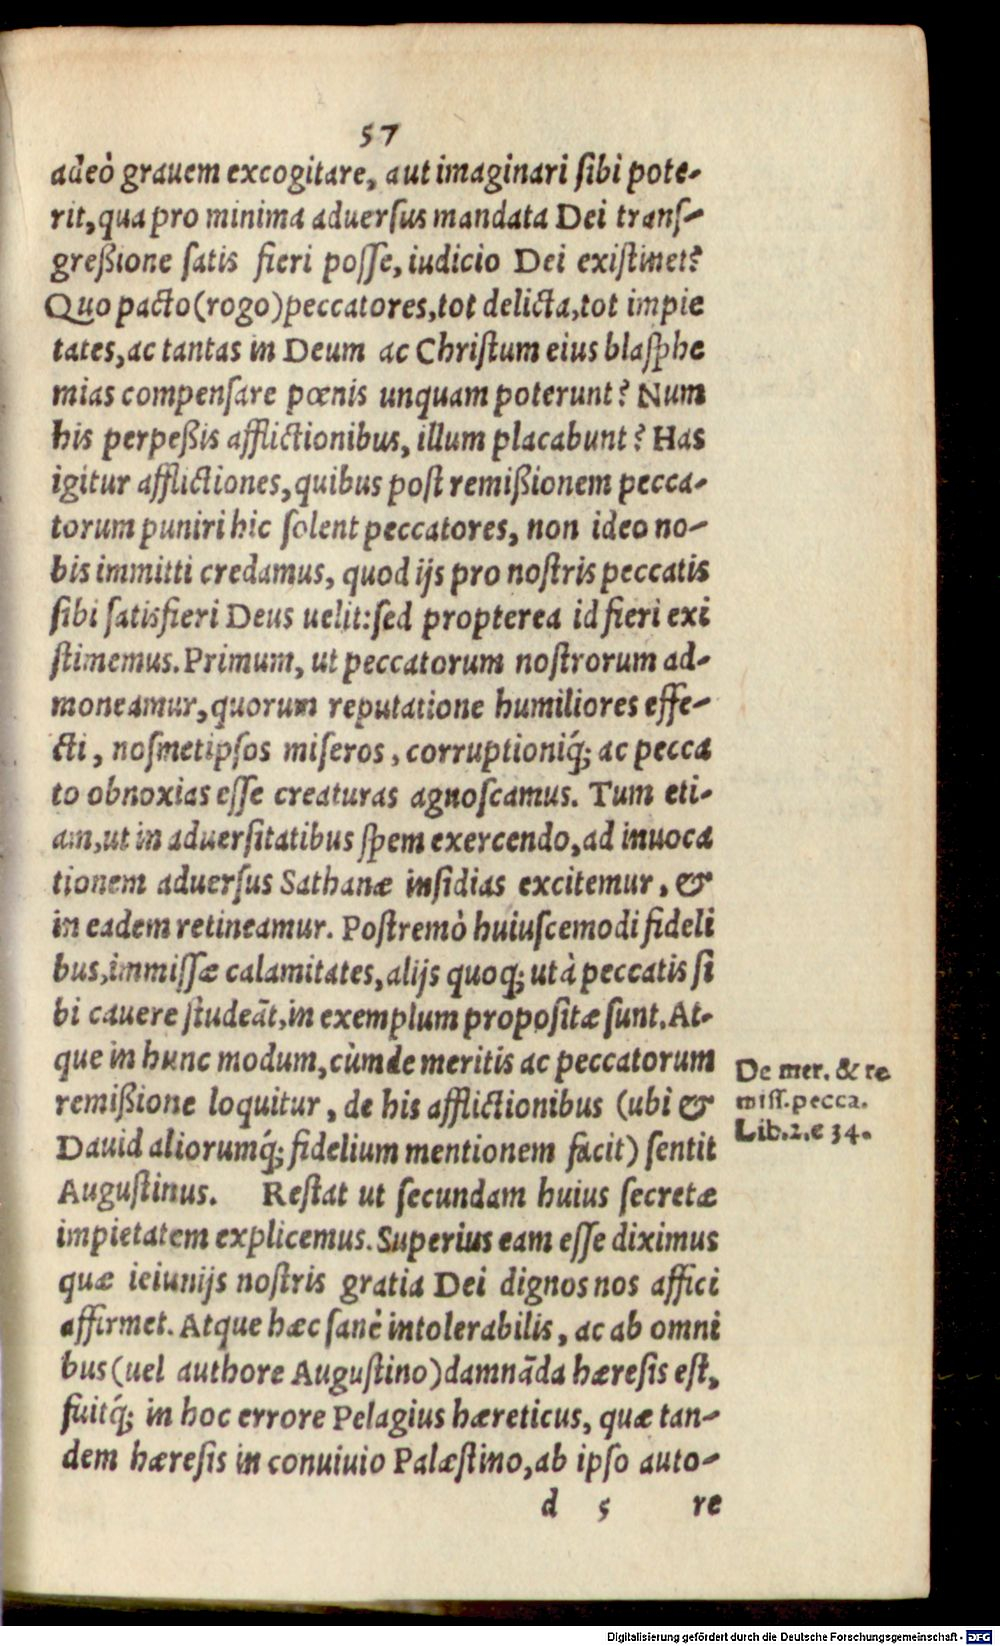 57
adeò grauem excogitare, aut imaginari sibi pote-
rit, qua pro minima aduersus mandata Dei trans-
greßione satis fieri posse, iudicio Dei existimet?
Quo pacto (rogo) peccatores, tot delicta, tot impie
tates, ac tantas in Deum ac Christum eius blasphe
mias compensare pœnis unquam poterunt? Num
his perpeßis afflictionibus, illum placabunt? Has
igitur afflictiones, quibus post remißionem pecca-
torum puniri hic solent peccatores, non ideo no-
bis immitti credamus, quod ijs pro nostris peccatis
sibi satisfieri Deus uelit: sed propterea id fieri exi
stimemus. Primum, ut peccatorum nostrorum ad-
moneamur, quorum reputatione humiliores effe-
cti, nosmetipsos miseros, corruptioniq́; ac pecca
to obnoxias esse creaturas agnoscamus. Tum eti-
am, ut in aduersitatibus spem exercendo, ad inuoca
tionem aduersus Sathanæ insidias excitemur, &
in eadem retineamur. Postremò huiuscemodi fideli
bus, immissæ calamitates, alijs quoq; ut à peccatis si
bi cauere studeāt, in exemplum propositæ sunt. At-
que in hunc modum, cùm de meritis ac peccatorum
remißione loquitur, de his afflictionibus (ubi &
Dauid aliorumq́; fidelium mentionem facit) sentit
Augustinus. Restat ut secundam huius secretæ
impietatem explicemus. Superius eam esse diximus
quæ ieiunijs nostris gratia Dei dignos nos affici
affirmet. Atque hæc sanè intolerabilis, ac ab omni
bus (uel authore Augustino) damnāda hæresis est,
fuitq́; in hoc errore Pelagius hæreticus, quæ tan-
dem hæresis in conuiuio Palæstino, ab ipso auto-
d 5 re
De mer. & re
miss. pecca.
Lib. 2. c 34.
Digitalisierung gefördert durch die Deutsche Forschungsgemeinschaft - DFG